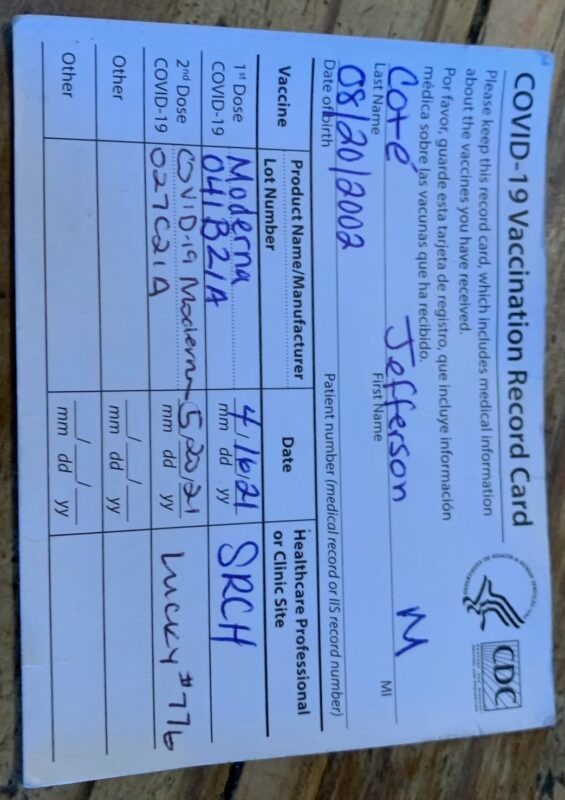 COVID-19 Vaccination Record Card
CDC
Please keep this record card, which includes medical information
about the vaccines you have received.
Por favor, guarde esta tarjeta de registro, que incluye información
médica sobre las vacunas que ha recibido.
Coté Jefferson M
Last Name First Name MI
08/20/2002
Date of birth Patient number (medical record or IIS record number)
Vaccine Product Name/Manufacturer Date Healthcare Professional
Lot Number or Clinic Site
1st Dose Moderna 4/16/21 SRCH
COVID-19 041B21A mm dd yy
2nd Dose COVID-19 Moderna 5/20/21 Lucky #776
COVID-19 027C21A mm dd yy
Other __/__/__
mm dd yy
Other __/__/__
mm dd yy